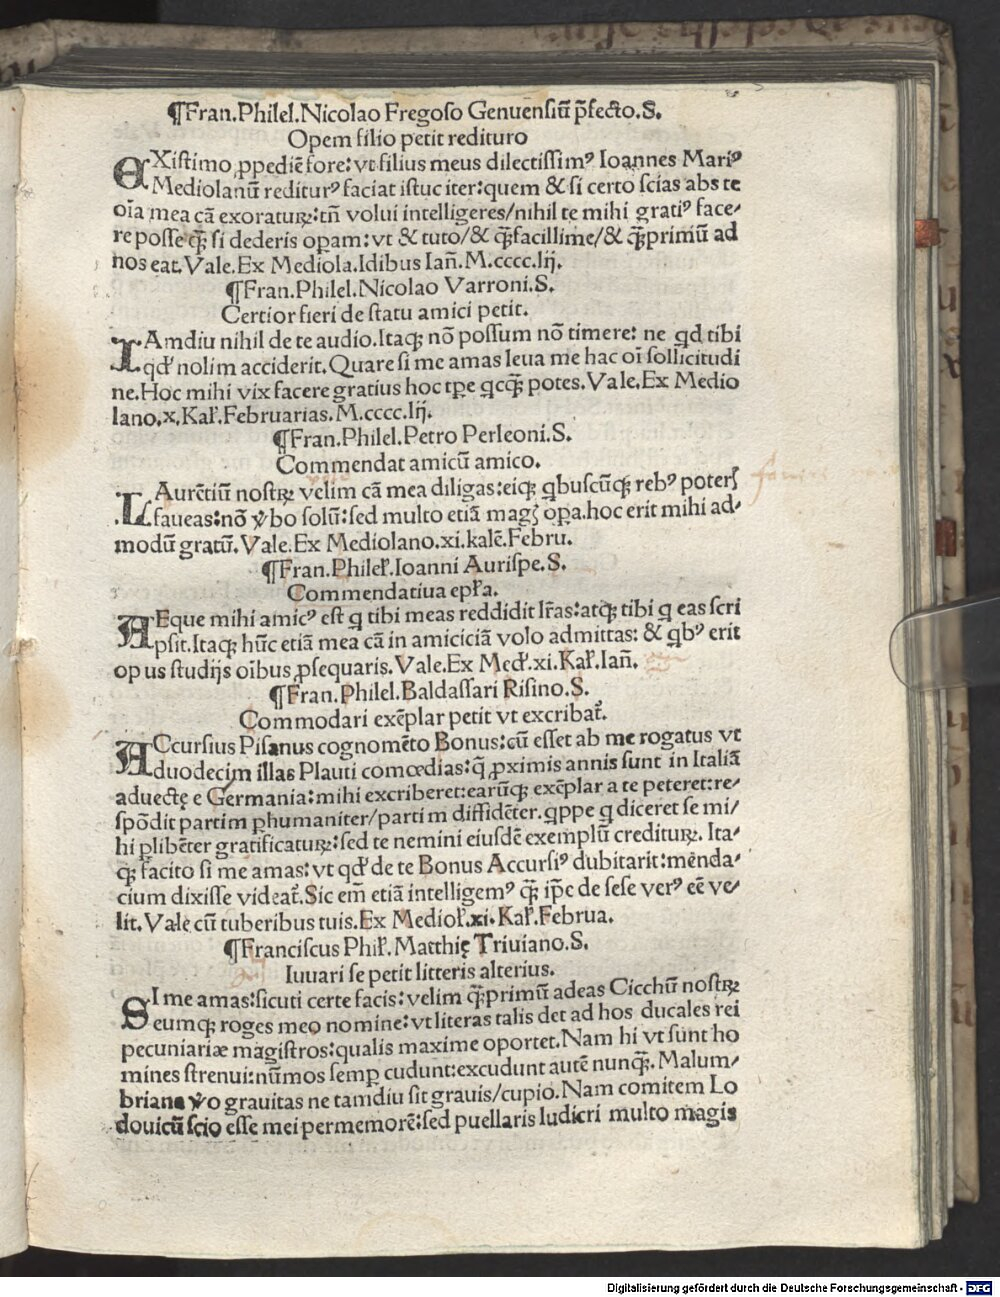 ¶Fran.Philel.Nicolao Fregoso Genuensiū p̄fecto.S.
Opem filio petit redituro
EXistimo ꝓpediē fore: vt filius meus dilectissimꝰ Ioannes Mariꝰ
Mediolanū rediturꝰ faciat istuc iter:quem & si certo scias abs te
oīa mea cā exoraturꝝ:tn̄ volui intelligeres/nihil te mihi gratiꝰ face-
re posse q̄ꝫ si dederis opam: vt & tuto/& q̄ꝫfacillime/& q̄ꝫprimū ad
nos eat.Vale.Ex Mediola.Idibus Ian̄.M.cccc.lij.
¶Fran.Philel.Nicolao Varroni.S.
Certior fieri de statu amici petit.
IAmdiu nihil de te audio.Itaqꝫ nō possum nō timere: ne qd tibi
qd' nolim acciderit.Quare si me amas leua me hac oī sollicitudi
ne.Hoc mihi vix facere gratius hoc tꝑe qcq̄ꝫ potes.Vale.Ex Medio
lano.x.Kal'.Februarias.M.cccc.lij.
¶Fran.Philel.Petro Perleoni.S.
Commendat amicū amico.
LAurētiū nostrꝝ velim cā mea diligas:eiqꝫ qbuscūqꝫ rebꝰ poteris
faueas:nō v̓bo solū:sed multo etiā magꝭ oꝑa.hoc erit mihi ad-
modū gratū.Vale.Ex Mediolano.xi.kalē.Febru.
¶Fran.Philel'.Ioanni Aurispe.S.
Commendatiua epl'a.
AEque mihi amicꝰ est q tibi meas reddidit lr̄as:atqꝫ tibi q eas scri
psit.Itaqꝫ hūc etiā mea cā in amiciciā volo admittas: & qbꝰ erit
opus studijs oībus ꝓsequaris.Vale.Ex Med'.xi.Kal'.Ian̄.
¶Fran.Philel.Baldassari Risino.S.
Commodari exēplar petit vt excribat̉.
ACcursius Pisanus cognomēto Bonus:cū esset ab me rogatus vt
duodecim illas Plauti comœdias:q̄ ꝓximis annis sunt in Italiā
aduectę e Germania:mihi excriberet:earūqꝫ exēplar a te peteret:re-
spōdit partim ꝑhumaniter/partim diffidēter.qppe q diceret se mi/
hi ꝑlibēter gratificaturꝝ:sed te nemini eiusdē exemplū crediturꝝ. Ita-
qꝫ facito si me amas:vt qd' de te Bonus Accursiꝰ dubitarit:menda-
cium dixisse videat̉.Sic em̄ etiā intelligemꝰ q̄ꝫ ip̄e de sese verꝰ eē ve-
lit.Vale cū tuberibus tuis.Ex Mediol'.xi.Kal'.Februa.
¶Franciscus Phil'.Matthię Triuiano.S.
Iuuari se petit litteris alterius.
SI me amas:sicuti certe facis:velim q̄ꝫprimū adeas Cicchū nostrꝝ
eumqꝫ roges meo nomine:vt literas talis det ad hos ducales rei
pecuniariæ magistros:qualis maxime oportet.Nam hi vt sunt ho
mines strenui:nūmos semꝑ cudunt:excudunt autē nunq̄ꝫ. Malum/
briana v̓o grauitas ne tamdiu sit grauis/cupio.Nam comitem Lo
douicū scio esse mei permemorē:sed puellaris ludicri multo magis
Digitalisierung gefördert durch die Deutsche Forschungsgemeinschaft - DFG